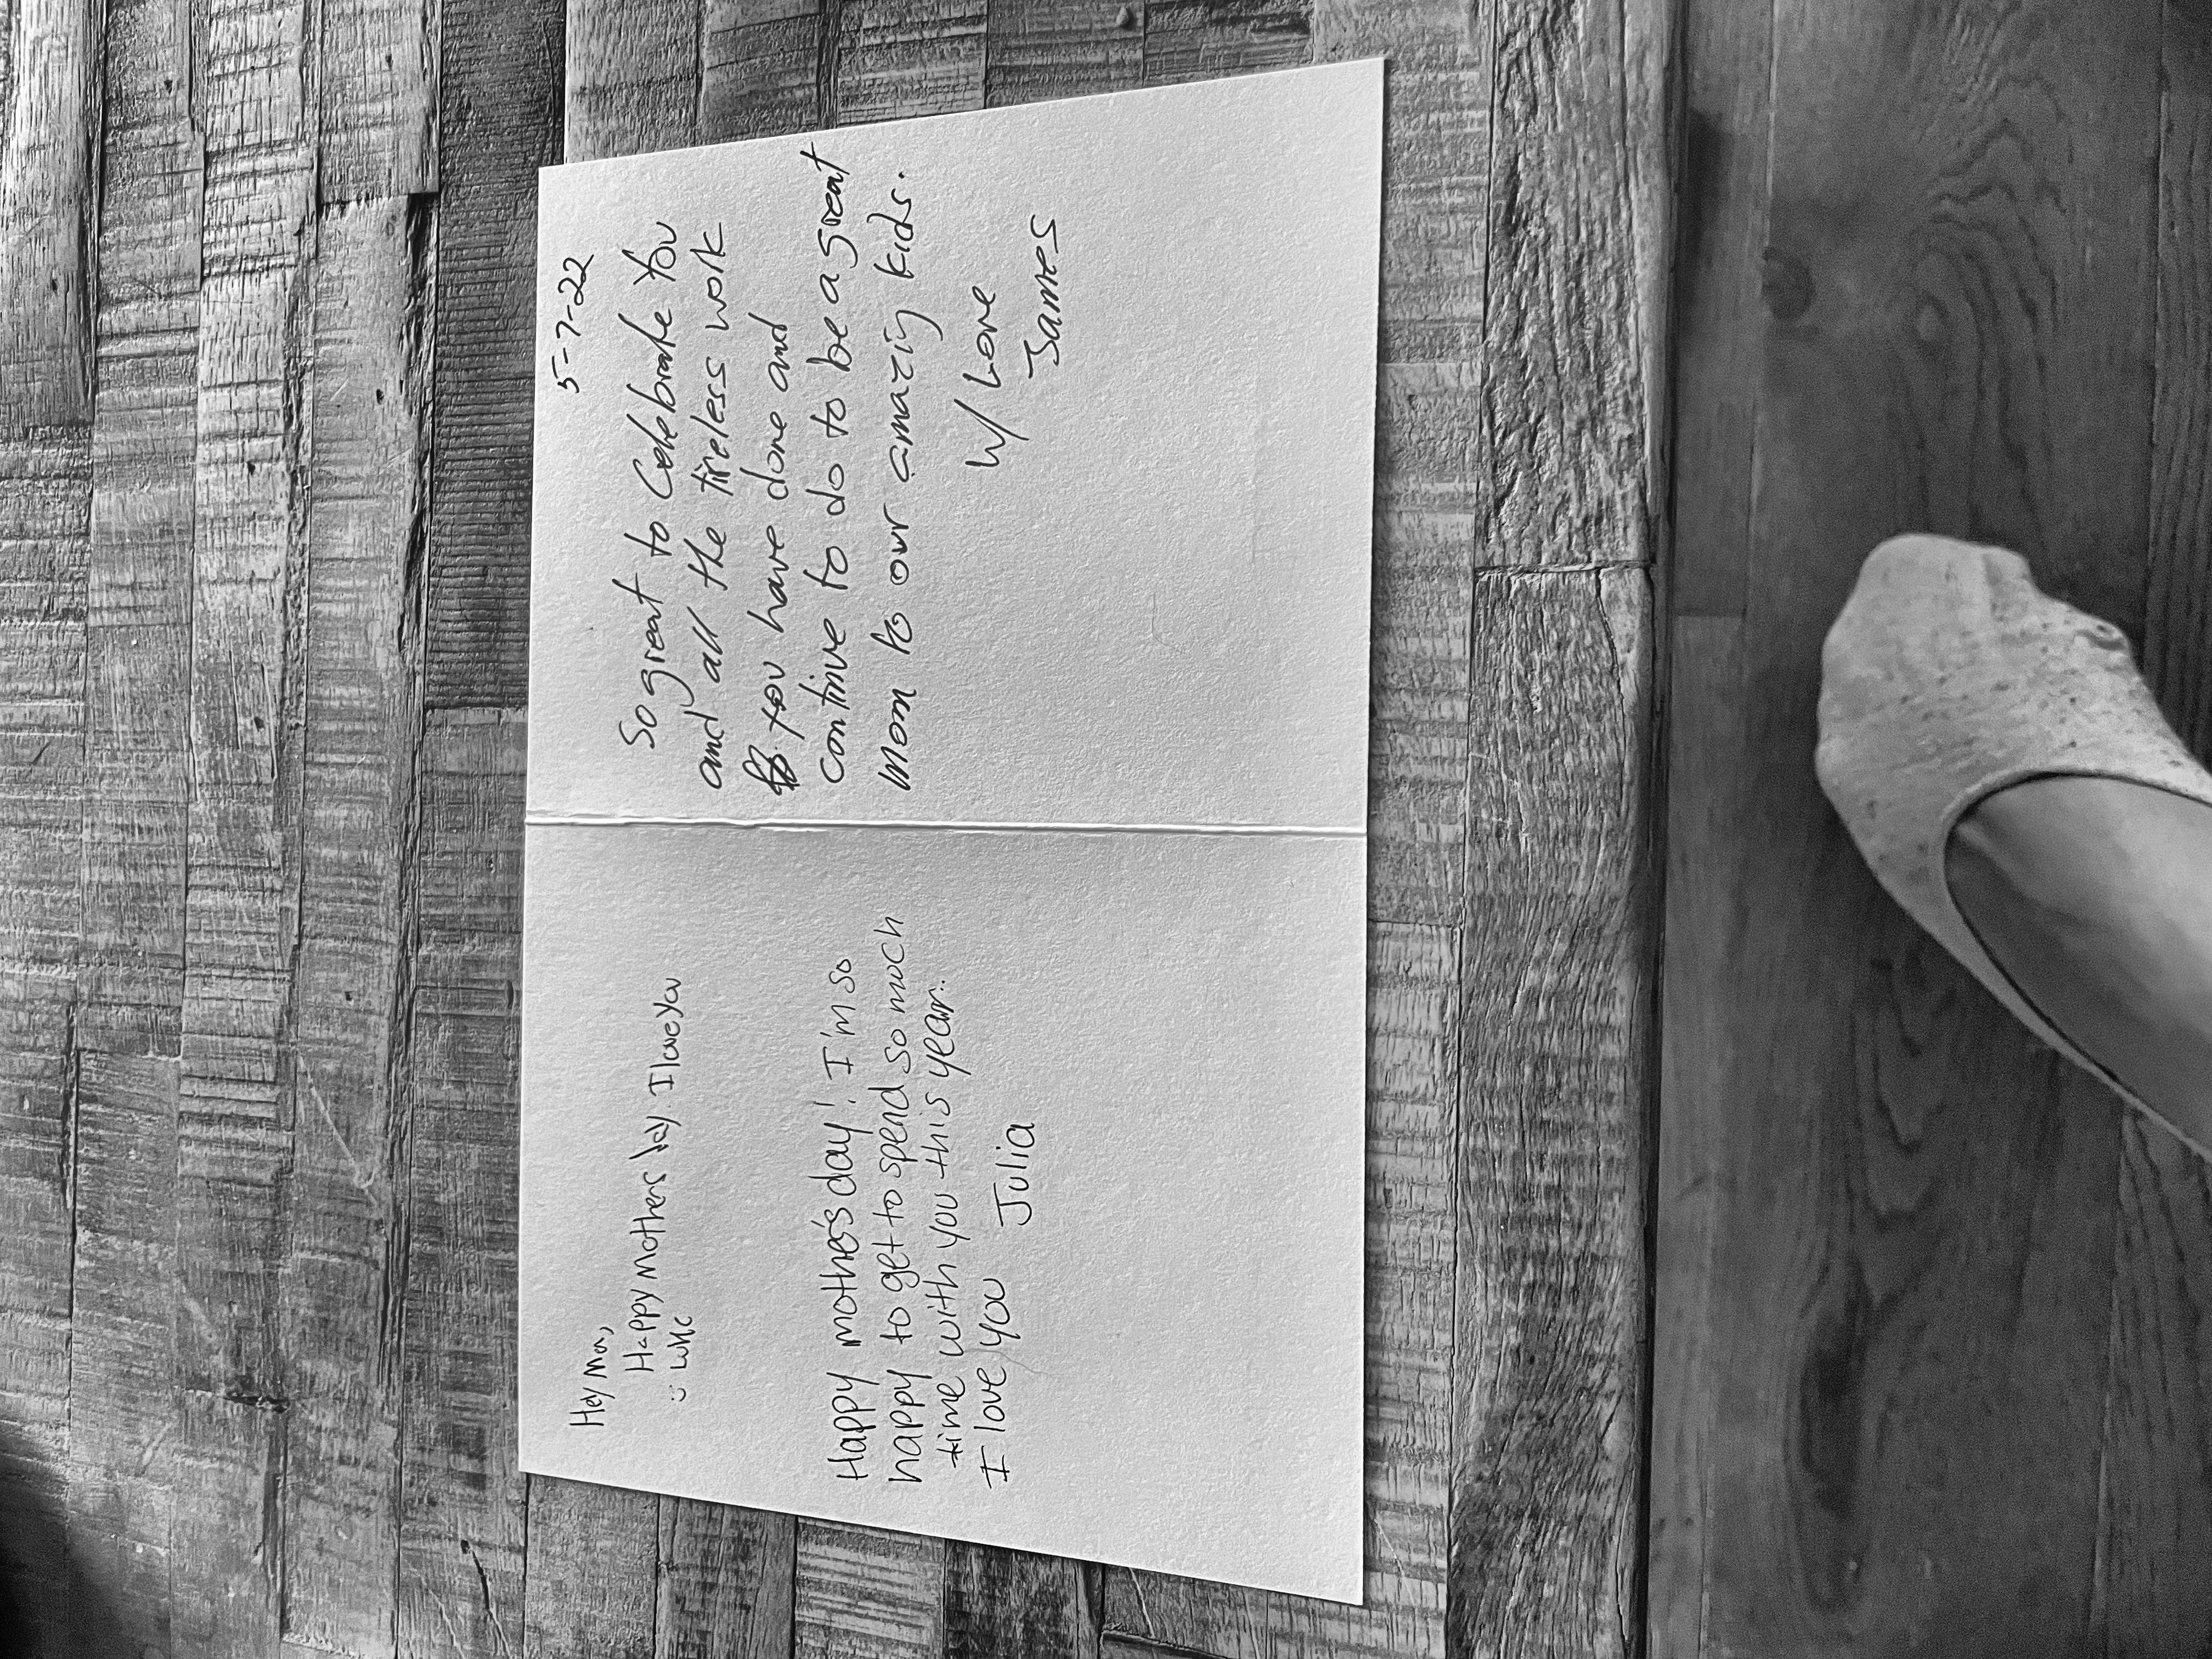 Hey Mom,
Happy Mothers Day I love you
:) 
Happy mothe's day! I'm so
happy to get to spend so much
time with you this year.
I love you Julia
5-7-22
So great to Celebrate You
and all the tireless work
you have done and
continue to do to be a great
Mom to our amazing kids.
W/ Love
James